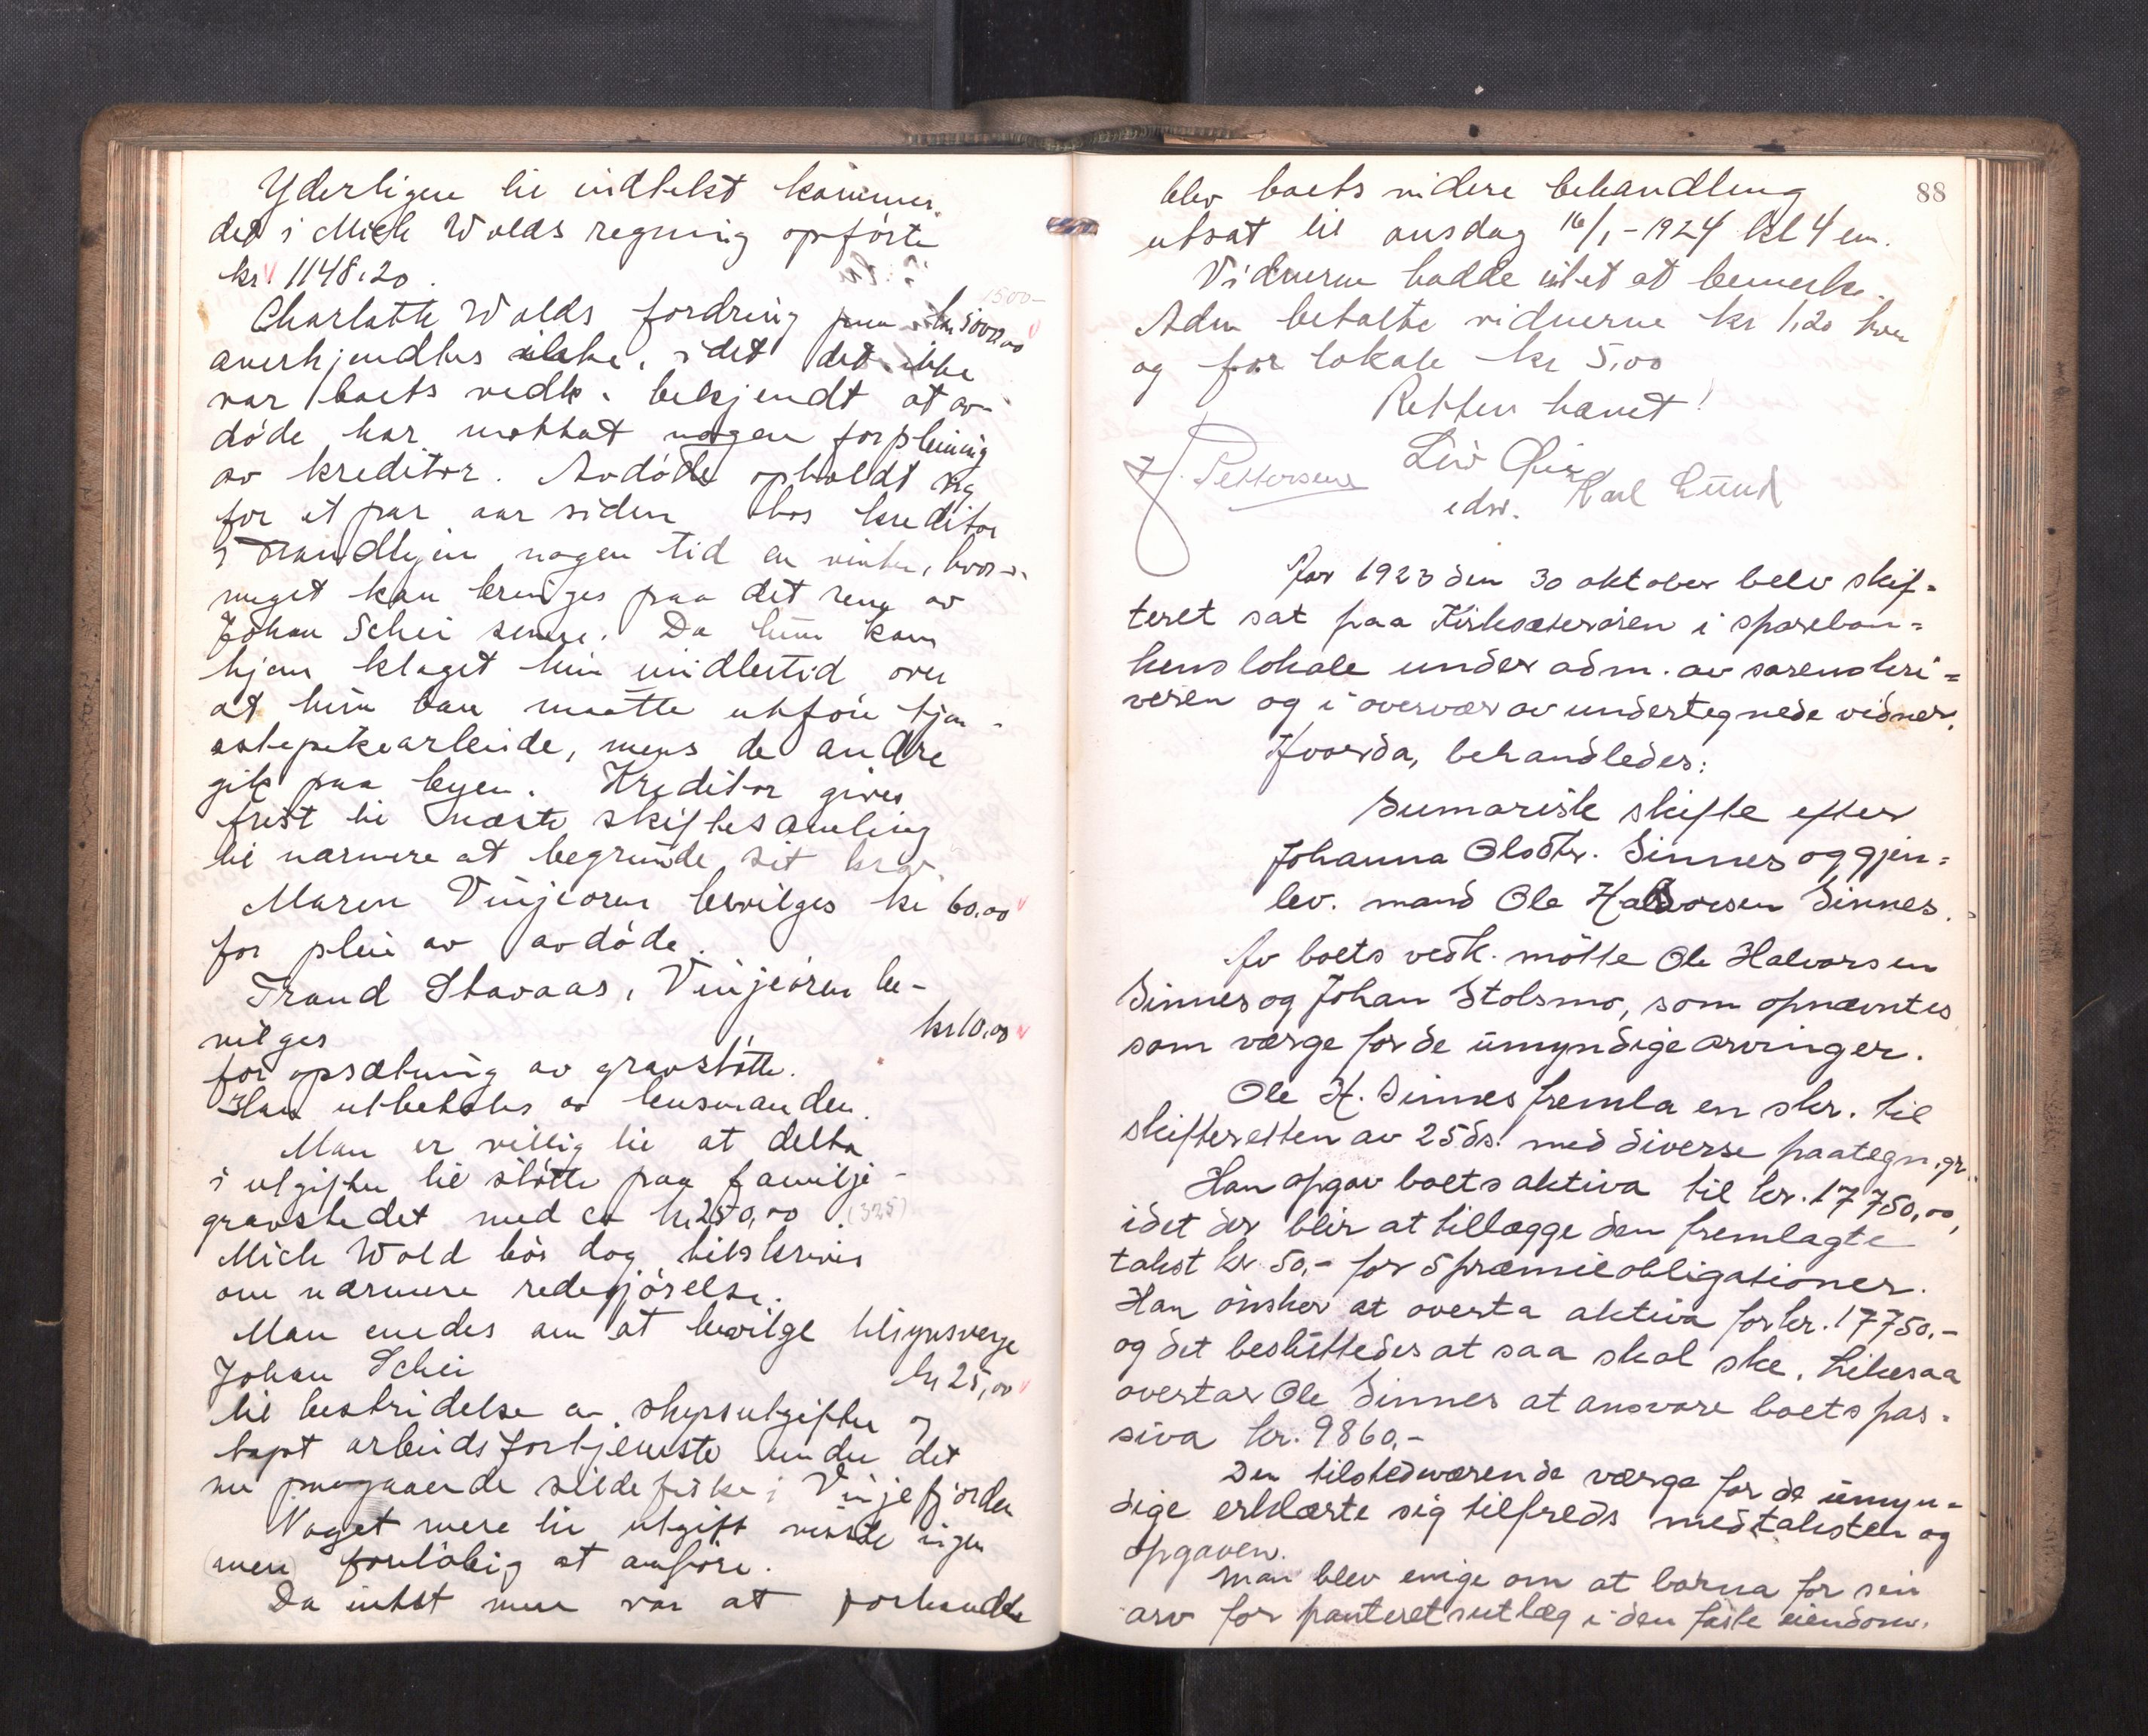 Yderligere til indtekt kommer
det i Mich Wolds regning opförte
kr 1148.20.
1500-
Charlotte Wolds fordring paa kr 5000,00
anerkjendtes ikke, idet det ikke
var boets vedk. bekjendt at av-
döde har mottat nogen forpleining
av kreditor. Avdöde opholdt sig
for et par aar siden hos kreditor
i Trondhjem nogen tid en vinter, hvor-
meget kan bringes paa det rene av
Johan Schei senere. Da hun kom
hjem klaget hun imidlertid over
at hun bare maatte utföre tjen-
estepikearbeide, mens de andre
gik paa byen. Kreditor gives
frist til næste skiftesamling
til nærmere at begrunde sit krav.
Maren Vinjeören bevilges kr 60.00
for pleie av avdöde.
Trond Stavaas, Vinjeören be-
vilges kr 10,00
for opsætning av gravstötte.
Han utbetales av lensmanden.
Man er villig til at delta
i utgifter til stötte paa familje-
gravstedet med ca kr 250,00 (325)
Mich Wold bör dog tilskrives
om nærmere redegjörelse.
Man enedes om at bevilge tilsynsverge
Johan Schei kr 25,00
til bestridelse av skysutgifter og
tapt arbeidsfortjeneste under det
nu paagaaende sildefiske i Vinjefjorden
Noget mere til utgift visste ingen
(mere) foreløbig at anföre.
Da intet mere var at forhandle
88
blev boets videre behandling
utsat til onsdag 16/1-1924 kl 4 em.
Vidnerne hadde intet at bemerke.
Adm betalte vidnerne kr 1,20 hver
og for lokale kr 5,00
Retten hævet!
J. Pettersen
edsv. Karl Lund
Aar 1923 den 30 oktober belv skif=
teret sat paa Kirksæterören i spareban=
kens lokale under adm. av sorenskri=
veren og i overvær av undertegnede vidner.
Hvorda, behandledes:
Sumarisk skifte efter
Johanna Olsdtr. Sinnes og gjen=
lev. mand Ole Halvorsen Sinnes.
Av boets vedk. mötte Ole Halvorsen
Sinnes og Johan Stolsmo, som opnævntes
som værge for de umyndige arvinger.
Ole H. Sinnes fremla en skr. til
skifteretten av 25 ds. med diverse paategn.gr.
Han opgav boets aktiva til kr. 17750,00,
idet der blir at tillægge den fremlagte
takst kr 50,- for 5 præmieobligationer.
Han önsker at overta aktiva for kr. 17750,-
og det besluttedes at saa skal ske. Likesaa
overtar Ole Sinnes at ansvare boets pas=
siva kr. 9860,-
Den tilstedværende værge for de umyn=
dige erklærte sig tilfreds med taksten og
opgaven.
Man blev enige om at barna for sin
arv for panteret utlæg i den faste eiendom.